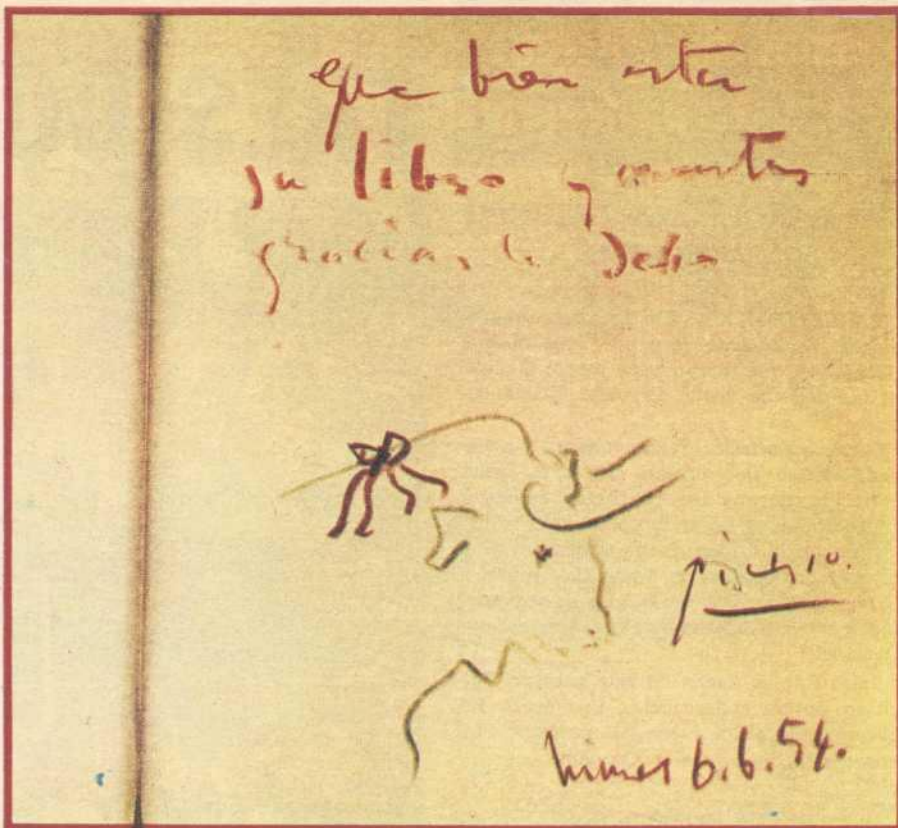 que bien esta
su libro y cuantas
gracias le debo
Picasso.
Nimes 6.6.54.